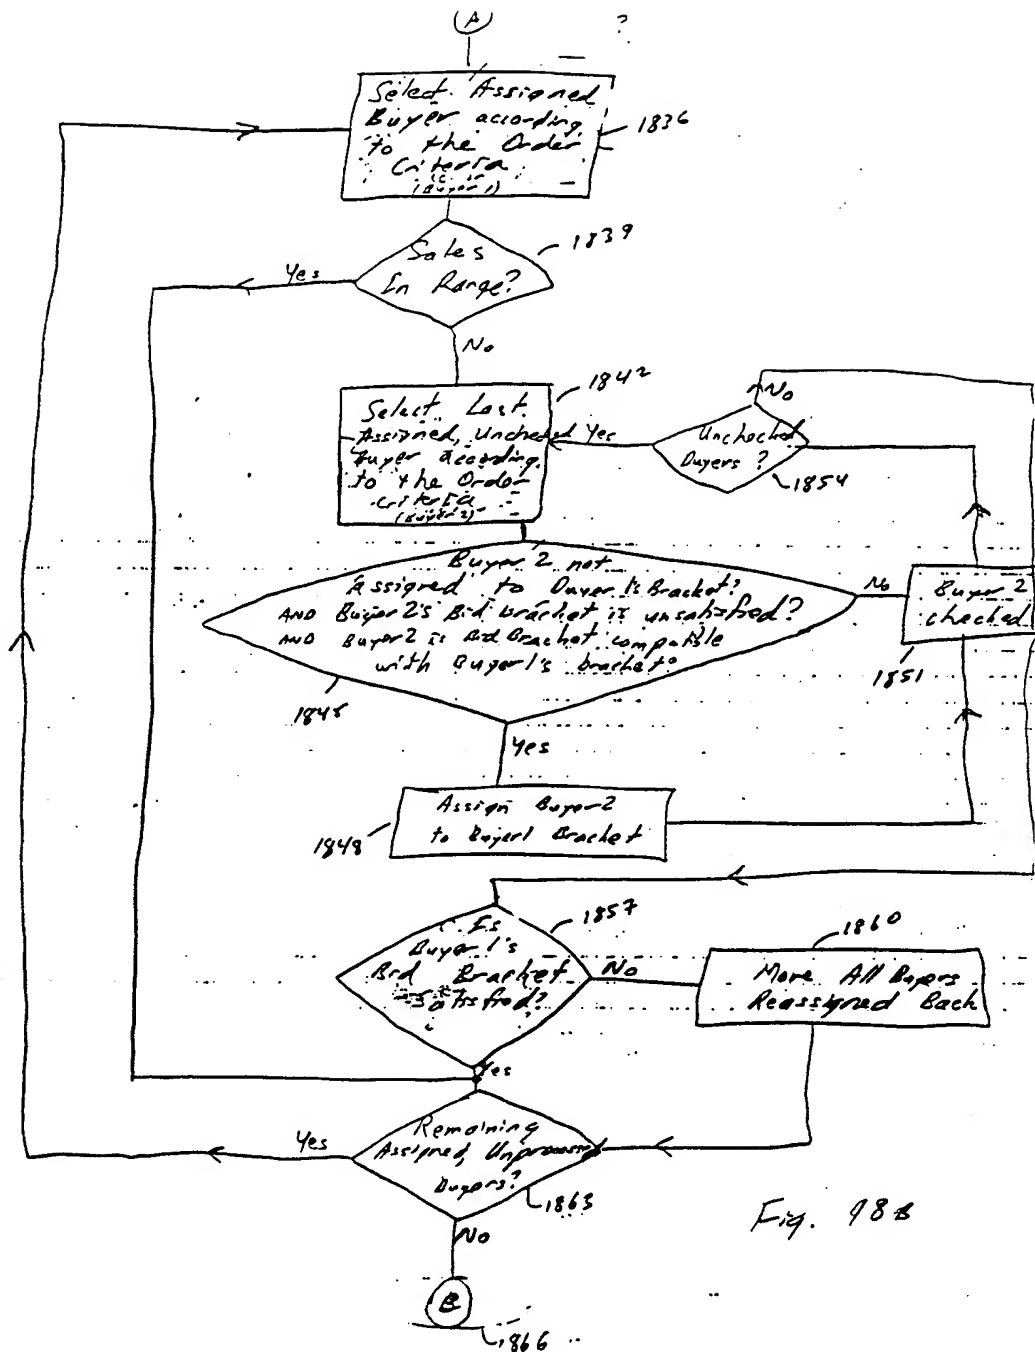 A
?
Select Assigned
Buyer according
to the Order
Criteria
(Buyer 1)
1836
Sales
In Range?
1839
Yes
No
1842
Select Last
Assigned, Unchecked
Buyer according
to the Order
Criteria
(Buyer 2)
Yes
Unchecked
Buyers?
No
1854
Buyer 2 not
Assigned to Buyer 1's Bracket?
AND Buyer 2's Bid Bracket is unsatisfied?
AND Buyer 2 is Bid Bracket compatible
with Buyer 1's bracket?
1845
No
Buyer 2
checked
1851
Yes
Assign Buyer 2
to Buyer 1 Bracket
1848
Is
Buyer 1's
Bid Bracket
Satisfied?
1857
No
1860
Move All Buyers
Reassigned Back
Yes
Remaining
Assigned, Unprocessed
Buyers?
Yes
1863
No
B
1866
Fig. 18B